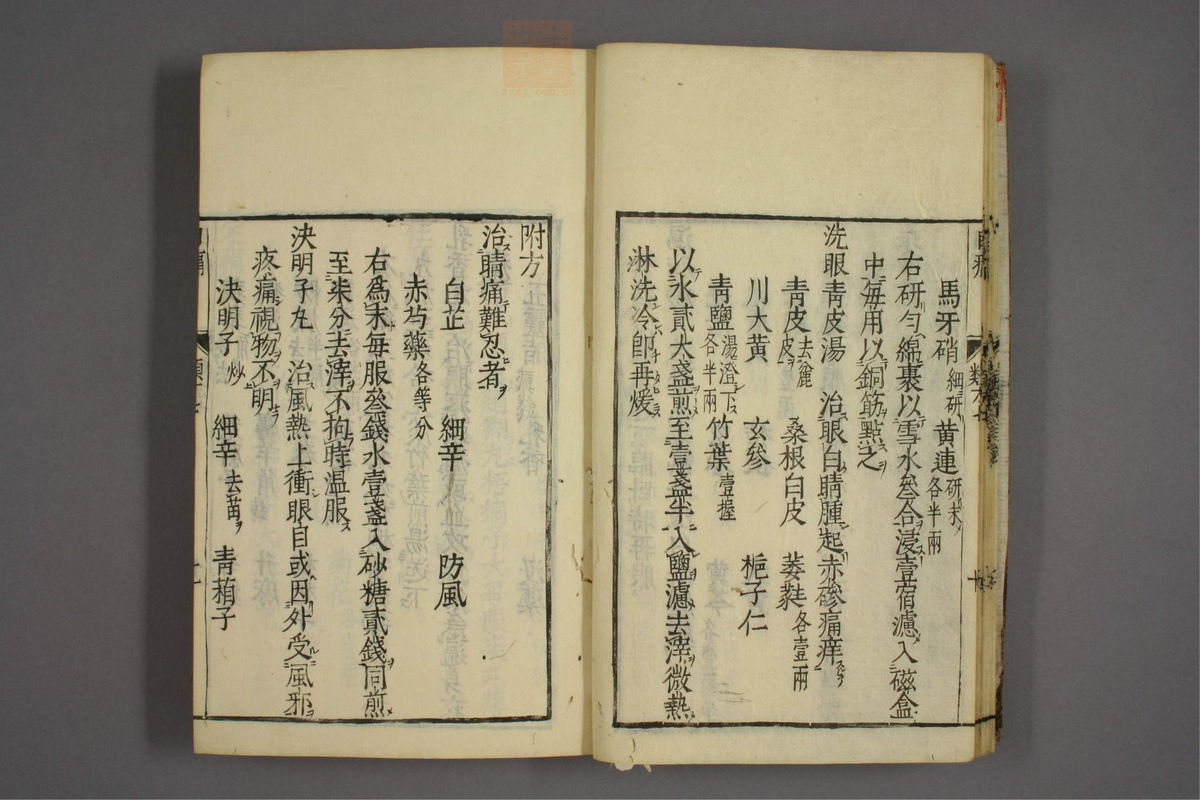 馬牙硝細研 黄連研末各半兩
右研勻綿裹以雪水叄合浸壹宿濾入磁盒
中毎用以銅筯㸃之
洗眼青皮湯 治眼白睛腫起赤磣痛痒
青皮去麄皮 桑根白皮 萎蕤各壹兩
川大黄 玄參 梔子仁
青鹽湯澄下各半兩 竹葉壹握
以水貳大盞煎至壹盞半入鹽濾去滓微熱
淋洗冷卽再煖
附方
治睛痛難忍者
白芷 細辛 防風
赤芍藥各等分
右爲末毎服叄錢水壹盞入砂糖貳錢同煎
至柒分去滓不拘時温服
決明子丸 治風熱上衝眼目或因外受風邪
疼痛視物不明
決明子炒 細辛去苗 青葙子